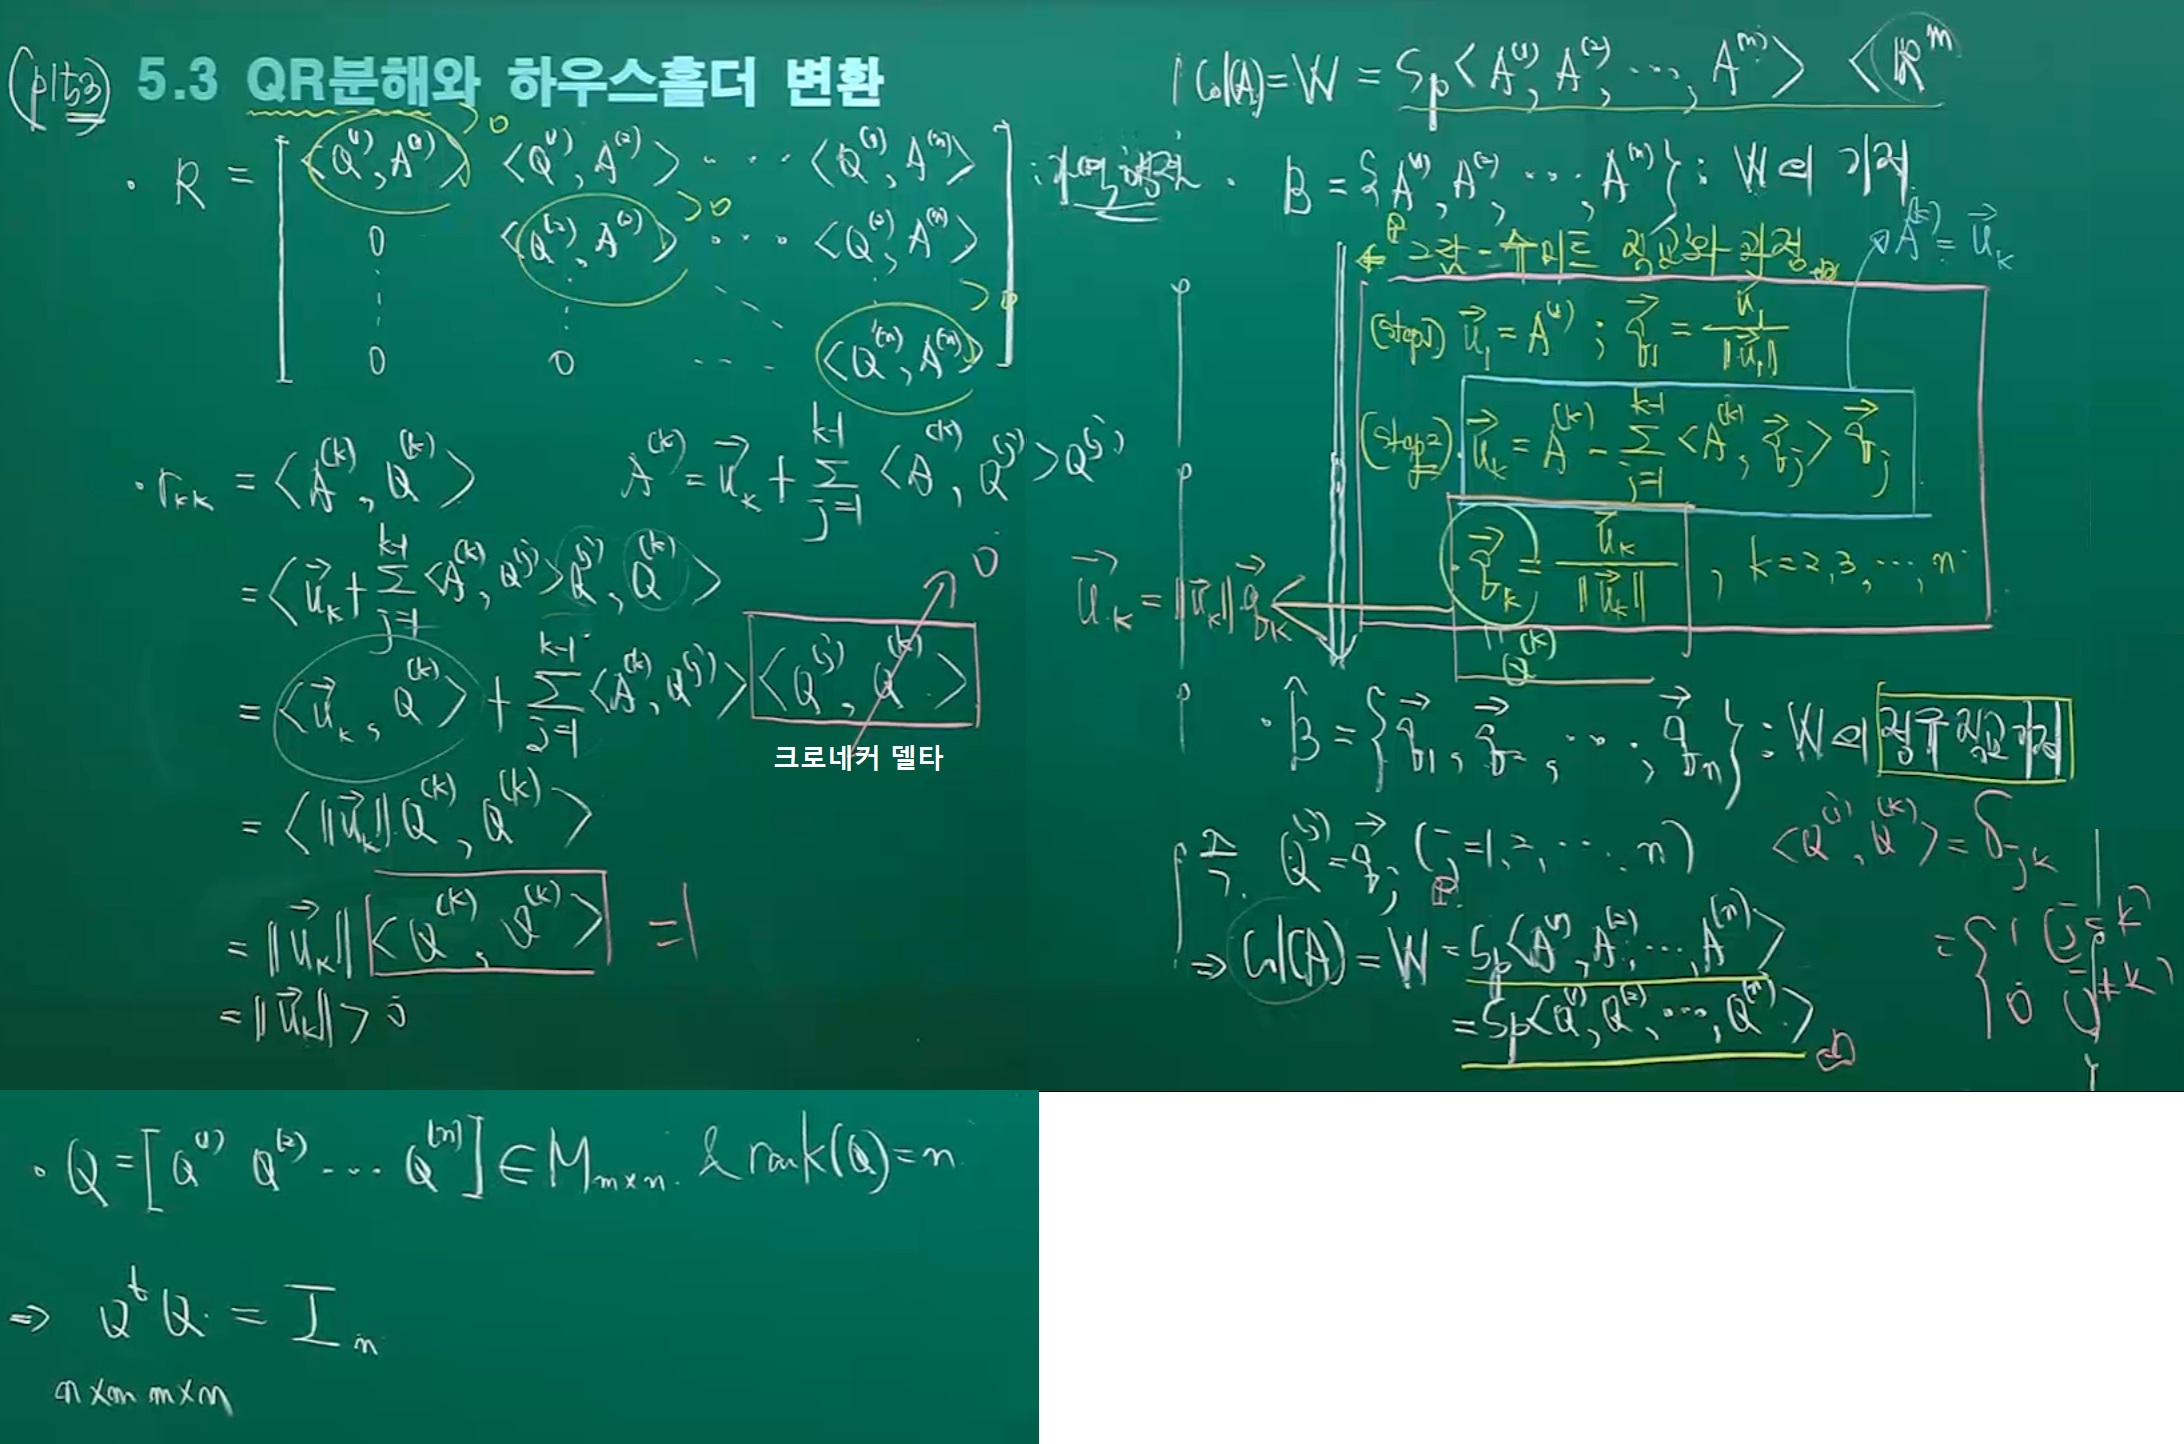 (p153) 5.3 QR분해와 하우스홀더 변환
· R = [ <Q⁽¹⁾, A⁽¹⁾> <Q⁽¹⁾, A⁽²⁾> ··· <Q⁽¹⁾, A⁽ⁿ⁾> ] : 가역행렬
>0
0 <Q⁽²⁾, A⁽²⁾> ··· <Q⁽²⁾, A⁽ⁿ⁾>
>0
0 0 ··· <Q⁽ⁿ⁾, A⁽ⁿ⁾>
>0
· r_kk = <A⁽ᵏ⁾, Q⁽ᵏ⁾> A⁽ᵏ⁾ = u⃗_k + Σ_{j=1}^{k-1} <A⁽ᵏ⁾, Q⁽ʲ⁾> Q⁽ʲ⁾
= <u⃗_k + Σ_{j=1}^{k-1} <A⁽ᵏ⁾, Q⁽ʲ⁾> Q⁽ʲ⁾, Q⁽ᵏ⁾>
= <u⃗_k, Q⁽ᵏ⁾> + Σ_{j=1}^{k-1} <A⁽ᵏ⁾, Q⁽ʲ⁾> <Q⁽ʲ⁾, Q⁽ᵏ⁾> 0
크로네커 델타
= <‖u⃗_k‖ Q⁽ᵏ⁾, Q⁽ᵏ⁾>
= ‖u⃗_k‖ <Q⁽ᵏ⁾, Q⁽ᵏ⁾> =1
= ‖u⃗_k‖ > 0
Col(A) = W = Sp<A⁽¹⁾, A⁽²⁾, ···, A⁽ⁿ⁾> < ℝᵐ
· B = {A⁽¹⁾, A⁽²⁾, ···, A⁽ⁿ⁾} : W의 기저
← 그람-슈미트 직교화 과정
A⁽ᵏ⁾ = u⃗_k
(step1) u⃗₁ = A⁽¹⁾ ; q⃗₁ = u⃗₁ / ‖u⃗₁‖
(step2) u⃗_k = A⁽ᵏ⁾ - Σ_{j=1}^{k-1} <A⁽ᵏ⁾, q⃗_j> q⃗_j
q⃗_k = u⃗_k / ‖u⃗_k‖ , k=2,3, ···, n
u⃗_k = ‖u⃗_k‖ q⃗_k
" Q⁽ᵏ⁾
· B̂ = {q⃗₁, q⃗₂, ···, q⃗_n} : W의 정규직교기저
Q⁽ʲ⁾ = q⃗_j (j=1,2, ···, n) <Q⁽ʲ⁾, Q⁽ᵏ⁾> = δ_jk
= { 1 (j=k)
0 (j≠k)
⇒ Col(A) = W = Sp<A⁽¹⁾, A⁽²⁾, ···, A⁽ⁿ⁾>
= Sp<Q⁽¹⁾, Q⁽²⁾, ···, Q⁽ⁿ⁾>
· Q = [Q⁽¹⁾ Q⁽²⁾ ··· Q⁽ⁿ⁾] ∈ M_{m×n} & rank(Q) = n
⇒ QᵗQ = I_n
n×m m×n